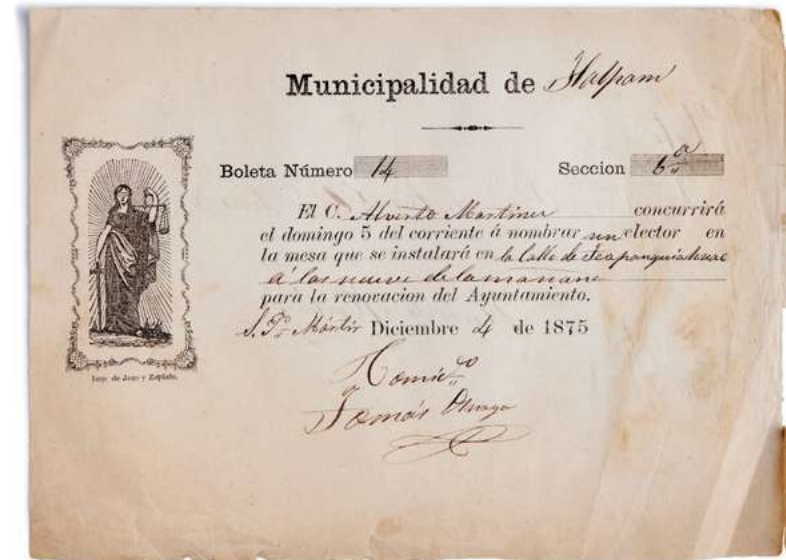 Municipalidad de Tlalpam
Boleta Número 14 Seccion 6ª
El C. Alverto Martinez concurrirá
el domingo 5 del corriente á nombrar un elector en
la mesa que se instalará en la Calle de
á las nueve de la mañana
para la renovacion del Ayuntamiento.
S. P. Mártir Diciembre 4 de 1875
Tomás
Imp. de